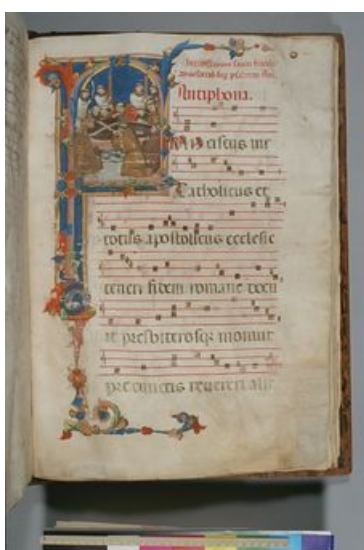 Antiphona.
Franciscus uir
Catholicus et
totus apostolicus ecclesie
teneri fidem romane docu
it presbiterosq; monuit
pre cunctis reuereri